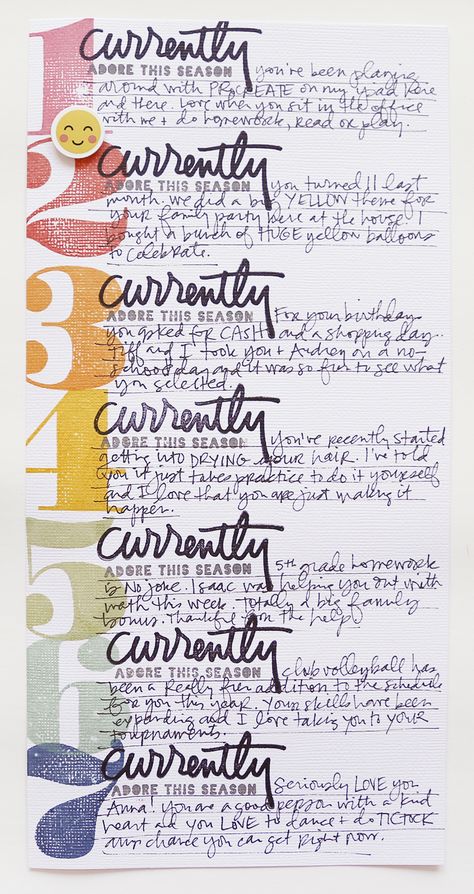 1
currently
ADORE THIS SEASON you've been playing
around with PROCREATE on my ipad here
and there. Love when you sit in the office
with me + do homework, read or play.
2
currently
ADORE THIS SEASON you turned 11 last
month. we did a big YELLOW theme for
your family party here at the house. I
bought a bunch of HUGE yellow balloons
to celebrate.
3
currently
ADORE THIS SEASON For your birthday
you asked for CASH and a shopping day.
and I took you + Audrey on a no-
school day and it was so fun to see what
you selected.
4
currently
ADORE THIS SEASON You've recently started
getting into DRYING your hair. I've told
you it just takes practice to do it yourself
and I love that you are just making it
happen.
5
currently
ADORE THIS SEASON 5th grade homework
is No joke. Isaac was helping you out with
math this week. Totally a big family
bonus. Thankful for the help.
6
currently
ADORE THIS SEASON club volleyball has
been a Really fun addition to the schedule
for you this year. Your skills have been
expanding and I love taking you to YOUR
tournaments.
7
currently
ADORE THIS SEASON Seriously LOVE you
Anna! you are a good person with a kind
heart and you LOVE to dance + do TICTOCK
any chance you can get Right now.